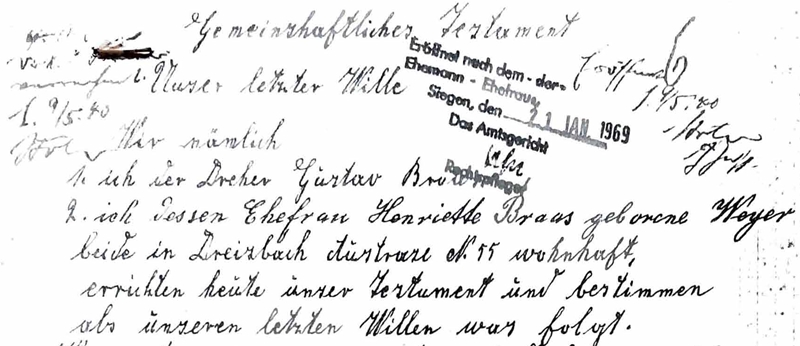 Gemeinshaftliches Testament
Unser letzter Wille
Eröffnet nach dem - der -
Ehemann - Ehefrau
Siegen, den 21 JAN. 1969
Das Amtsgericht
Rechtspfleger
1. 9/5.40
1. 9/5.40
Wir nämlich
1. ich der Dreher Gustav
2. ich dessen Ehefrau Henriette Braas geborene Weyer
beide in Dreisbach N. 55 wohnhaft,
errichten heute unser Testament und bestimmen
als unseren letzten Willen was folgt.